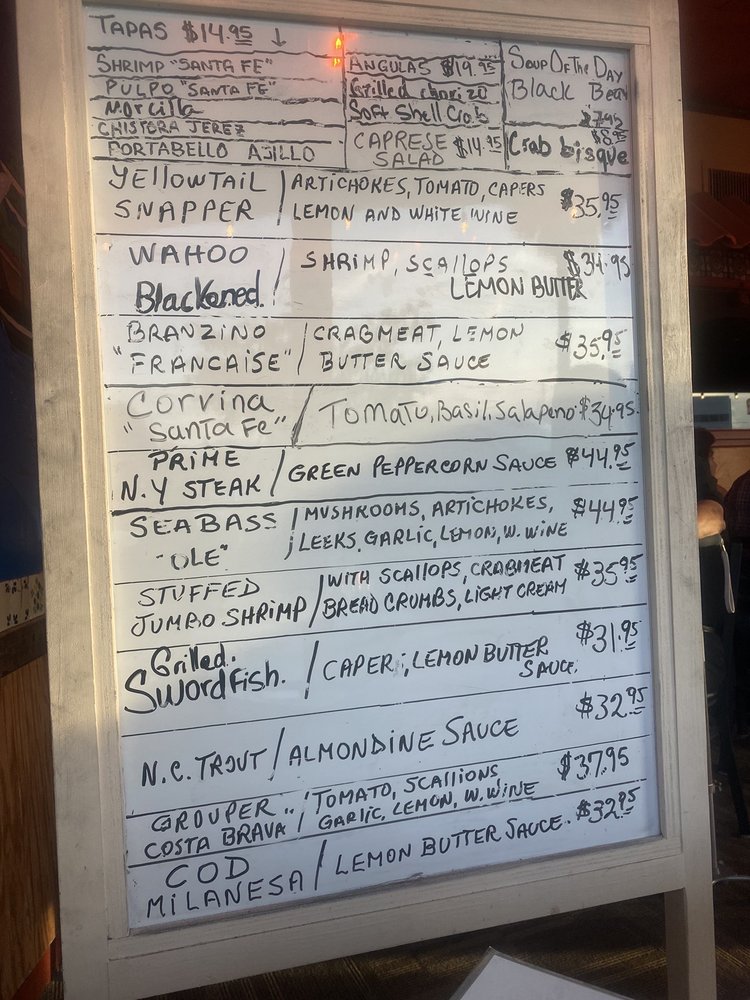 TAPAS $14.95 ↓
SHRIMP "SANTA FE"
PULPO "SANTA FE"
Morcilla
CHISTORA JEREZ
PORTABELLO AJILLO
ANGULAS $19.95
Grilled chorizo
Soft Shell Crab
CAPRESE $14.95
SALAD
Soup Of The Day
Black Bean
$7.95
$8.95
Crab bisque
YELLOWTAIL / ARTICHOKES, TOMATO, CAPERS
SNAPPER LEMON AND WHITE WINE $35.95
WAHOO / SHRIMP, SCALLOPS $34.95
Blackened. LEMON BUTTER
BRANZINO / CRAGMEAT, LEMON
"FRANCAISE" BUTTER SAUCE $35.95
Corvina
"Santa Fe" / Tomato, Basil, Salapeno $34.95
PRIME
N.Y STEAK / GREEN PEPPERCORN SAUCE $44.95
SEA BASS / MUSHROOMS, ARTICHOKES, $44.95
"OLE" LEEKS, GARLIC, LEMON, W. WINE
STUFFED / WITH SCALLOPS, CRABMEAT $35.95
JUMBO SHRIMP BREAD CRUMBS, LIGHT CREAM
Grilled.
SwordFish. / CAPER, LEMON BUTTER $31.95
SAUCE.
N.C. TROUT / ALMONDINE SAUCE $32.95
GROUPER / TOMATO, SCALLIONS $37.95
COSTA BRAVA GARLIC, LEMON, W. WINE
COD / LEMON BUTTER SAUCE. $32.95
MILANESA